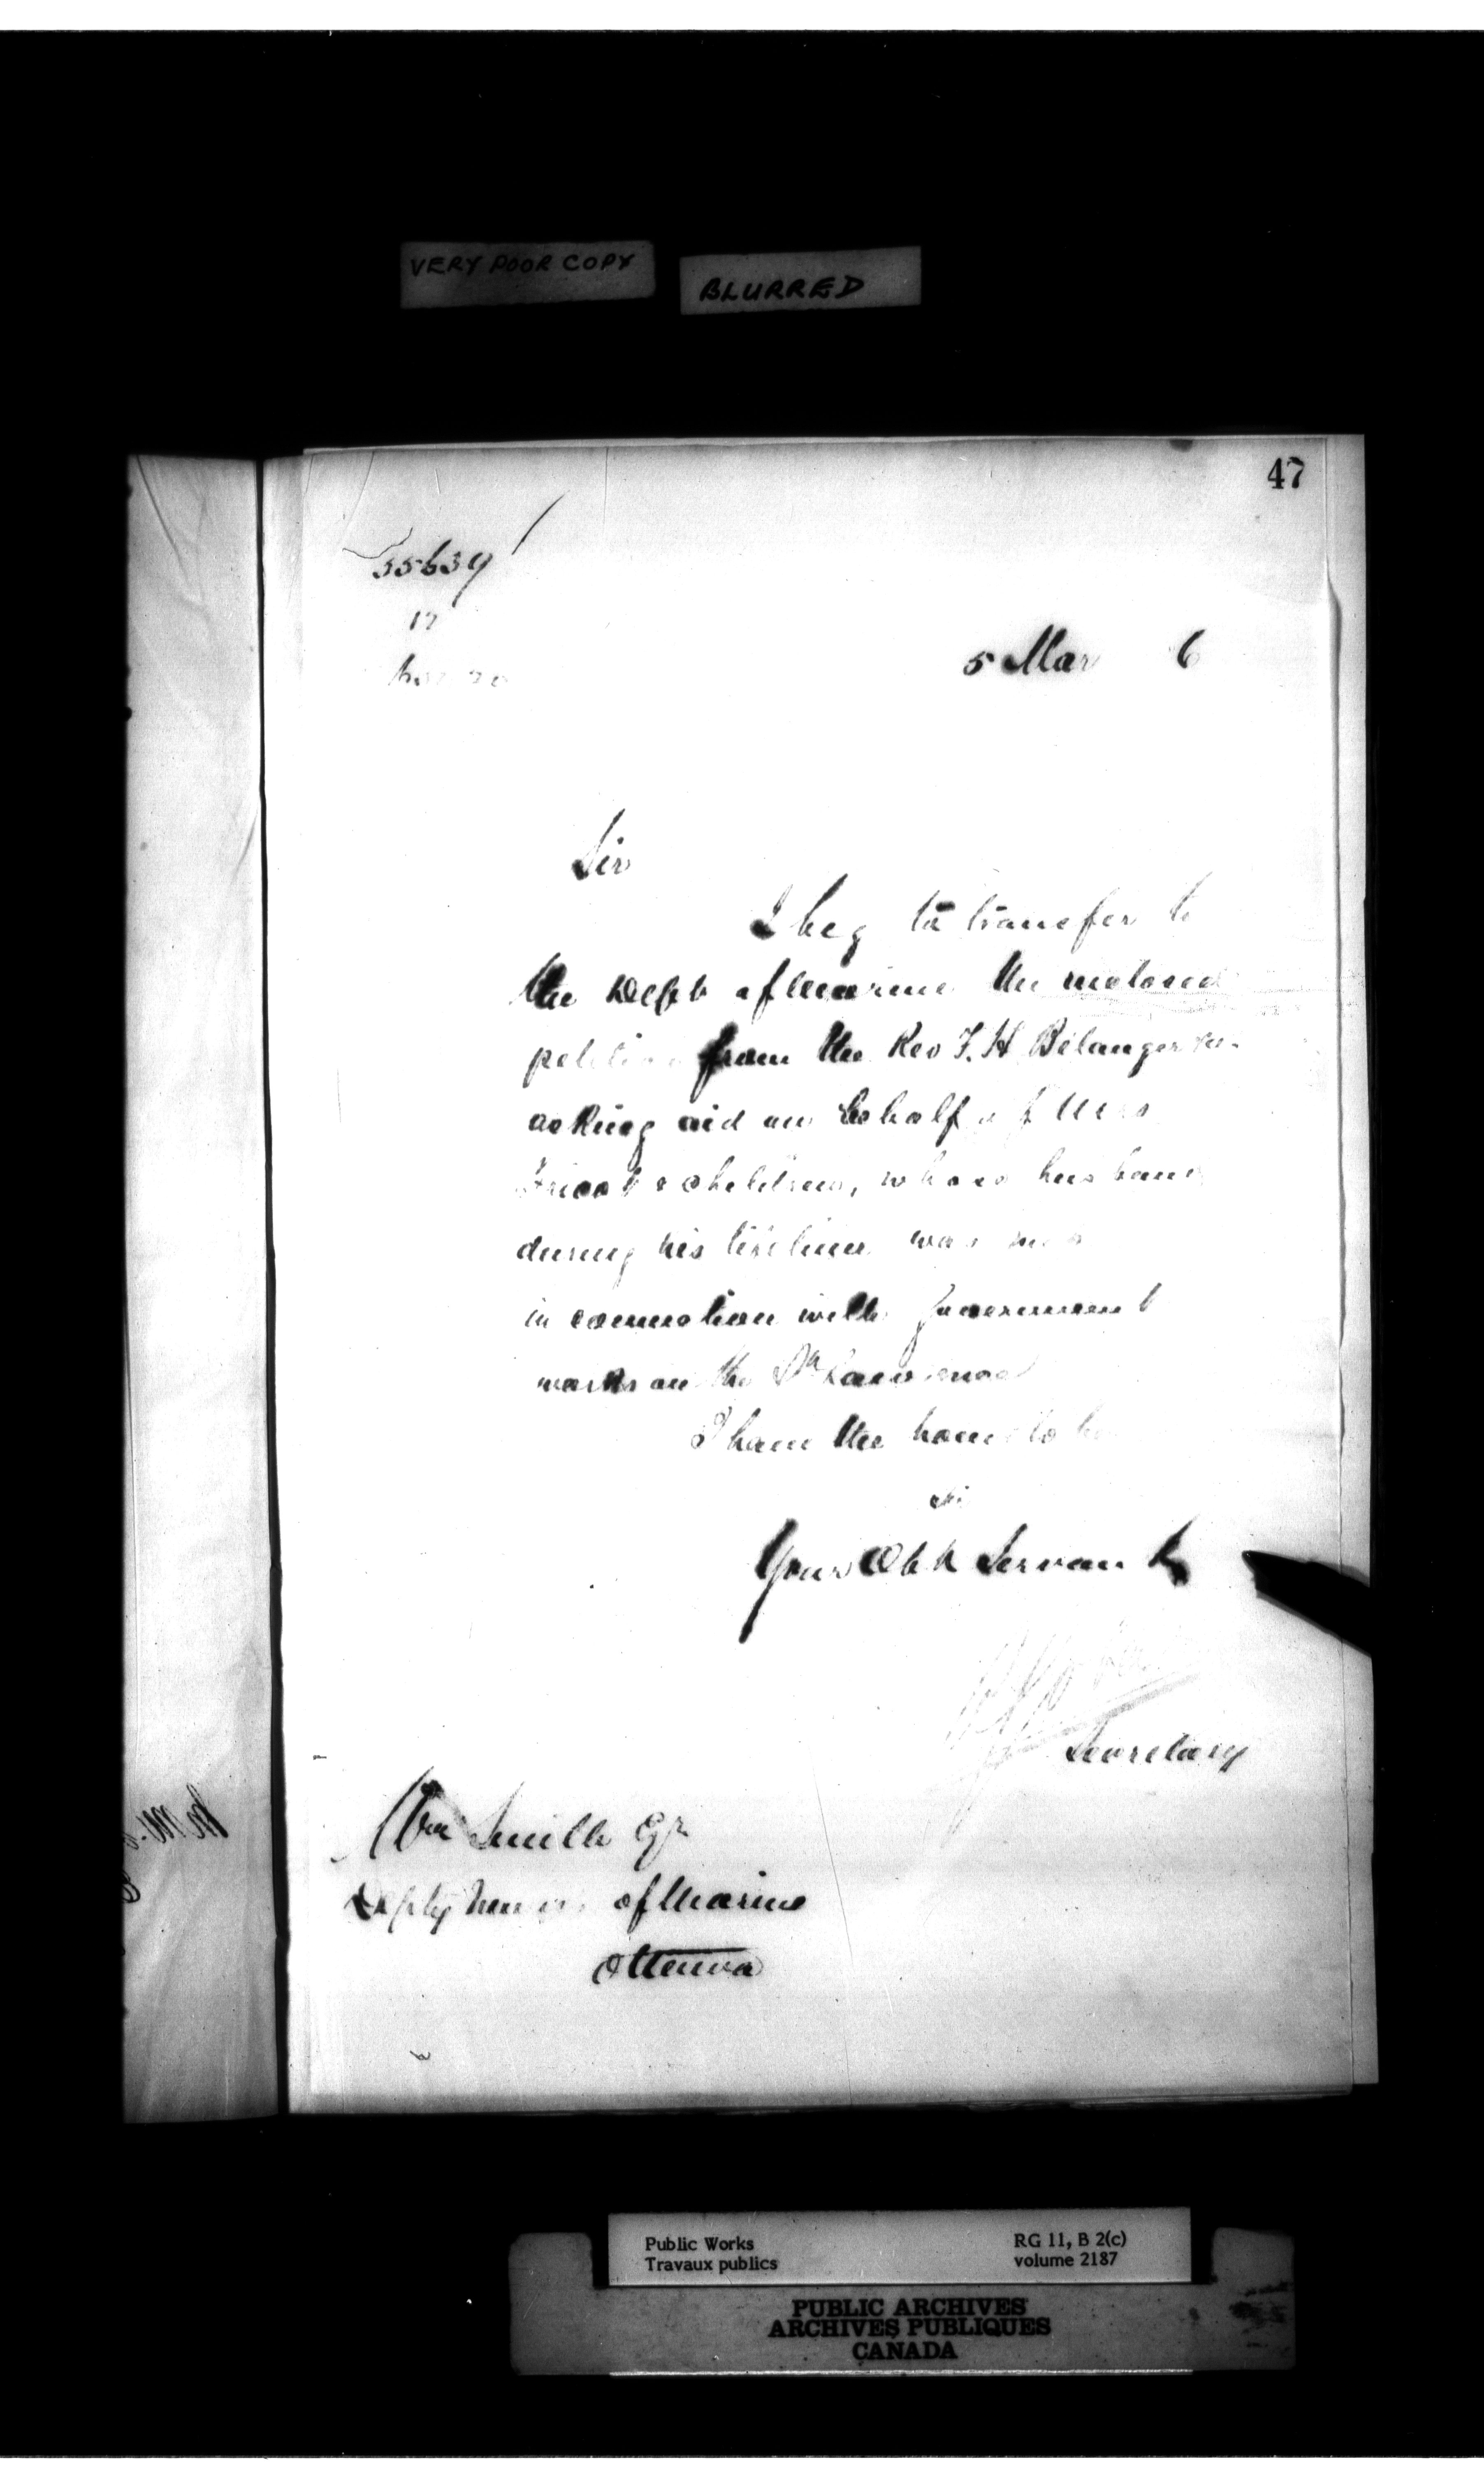 VERY POOR COPY
BLURRED
47
5 Mar 6
Sir
I beg to transfer to
the Dept of Marine the inclosed
petition from the Rev F. H Bélanger
asking aid on behalf of Mrs
& children, whose husband
during his lifetime was
in connection with Government
works on the St Lawrence
I have the honor to be
Sir
Your Obt Servant
Secretary
Wm Smith Esqr
Deputy Minister of Marine
Ottawa
Public Works
Travaux publics
RG 11, B 2(c)
volume 2187
PUBLIC ARCHIVES
ARCHIVES PUBLIQUES
CANADA